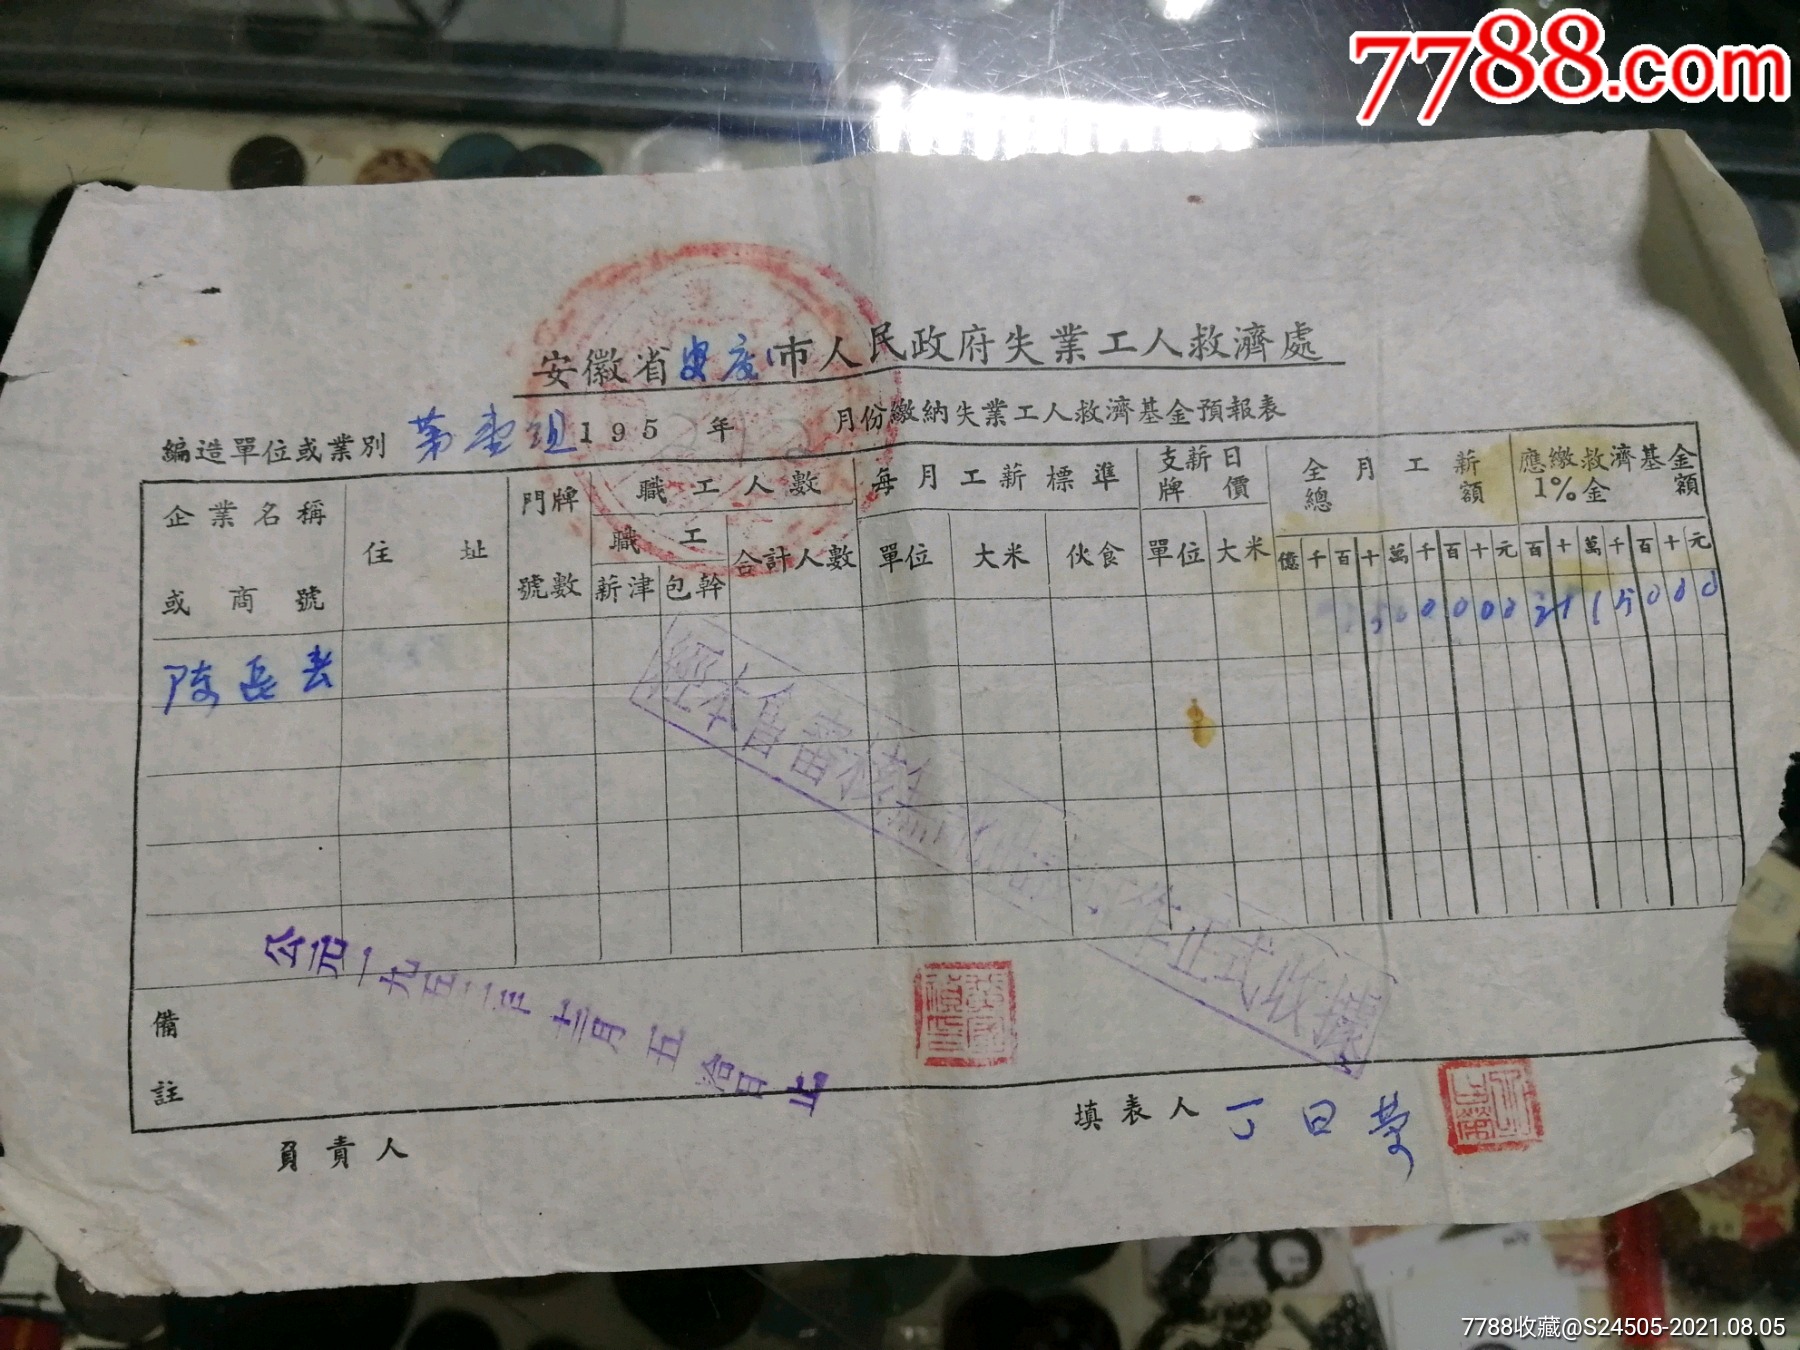 7788.com
安徽省安庆市人民政府失業工人救濟處
編造單位或業別 第壹组 195 年 月份繳納失業工人救濟基金預報表
企業名稱或商號 住址 門牌號數 職工人數 每月工薪標準 支薪日牌價 全月工薪總額 應繳救濟基金1%金額
職工 合計人數 單位 大米 伙食 單位 大米 億千百十萬千百十元 百十萬千百十元
薪津 包幹
15000
陈
經本會審核 作正式收據
公元一九五二年十二月五拾日止
備註
負責人
填表人 丁日荣
7788收藏@S24505-2021.08.05